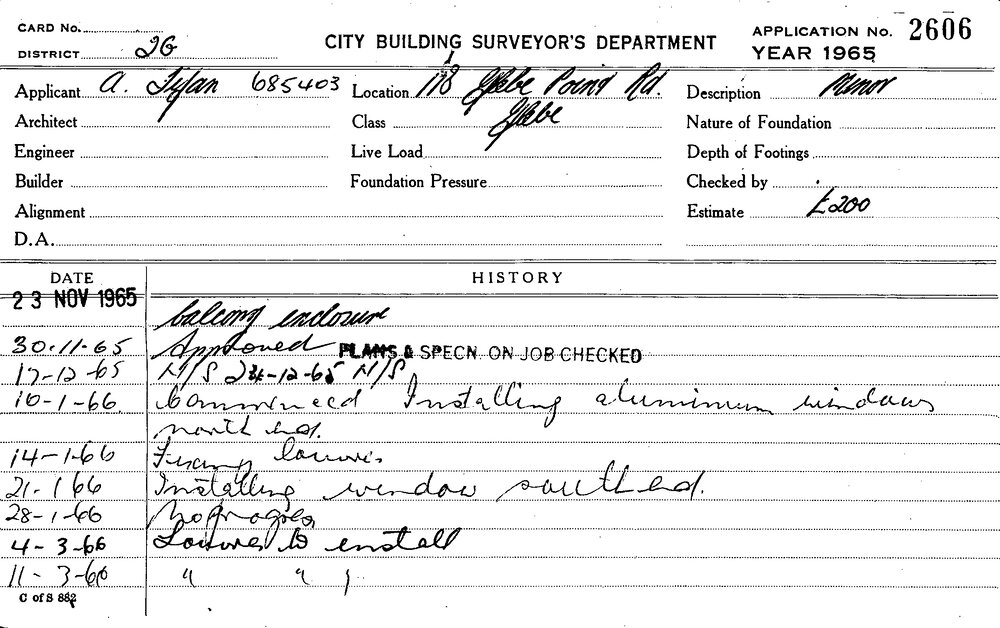 CARD No.
DISTRICT 2G
CITY BUILDING SURVEYOR'S DEPARTMENT
APPLICATION No. 2606
YEAR 1965
Applicant A. 685403
Location 118 Glebe Point Rd.
Glebe
Description Minor
Architect
Class
Nature of Foundation
Engineer
Live Load
Depth of Footings
Builder
Foundation Pressure
Checked by
Alignment
Estimate £200
D.A.
DATE HISTORY
23 NOV 1965
balcony enclosure
30.11.65 Approved PLANS & SPECN. ON JOB CHECKED
17-12-65 N/S 24-12-65 N/S
10-1-66 Commenced Installing aluminium windows
north end.
14-1-66 Fixing louvres
21-1 66 Installing window south end.
28-1-66 No progress
4-3-66 Louvres to install
11-3-66 " " "
C of S 882